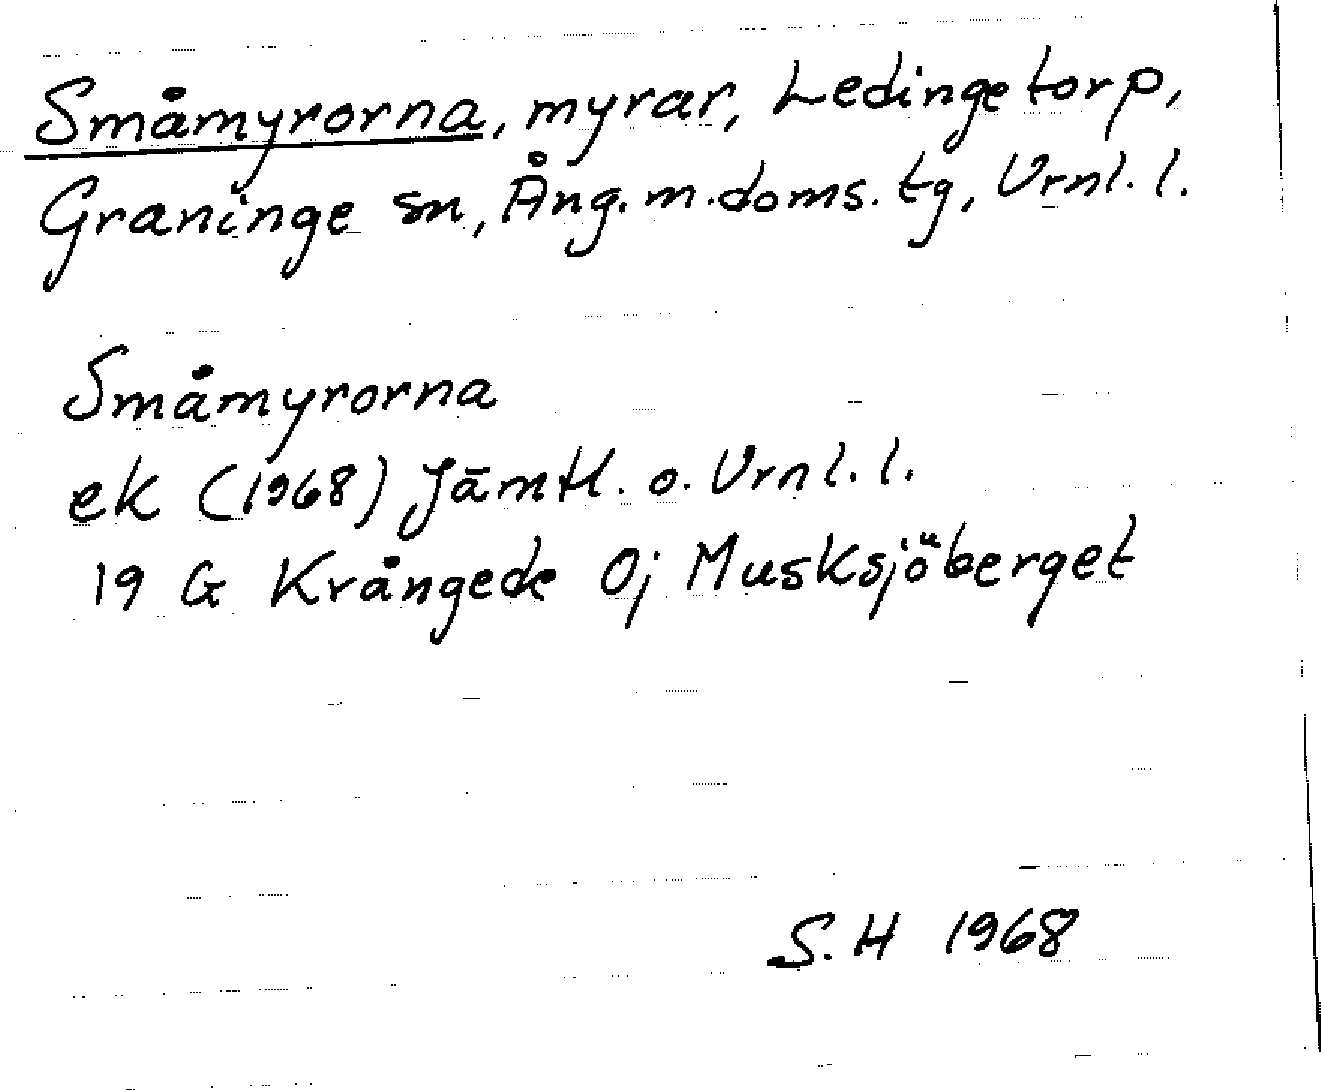 Småmyrorna, myrar, Ledingetorp,
Graninge sn, Ång. m. doms. tg, Vrnl. l.
Småmyrorna
ek (1968) Jämtl. o. Vrnl. l.
19 G Krångede Oj Musksjöberget
S. H 1968